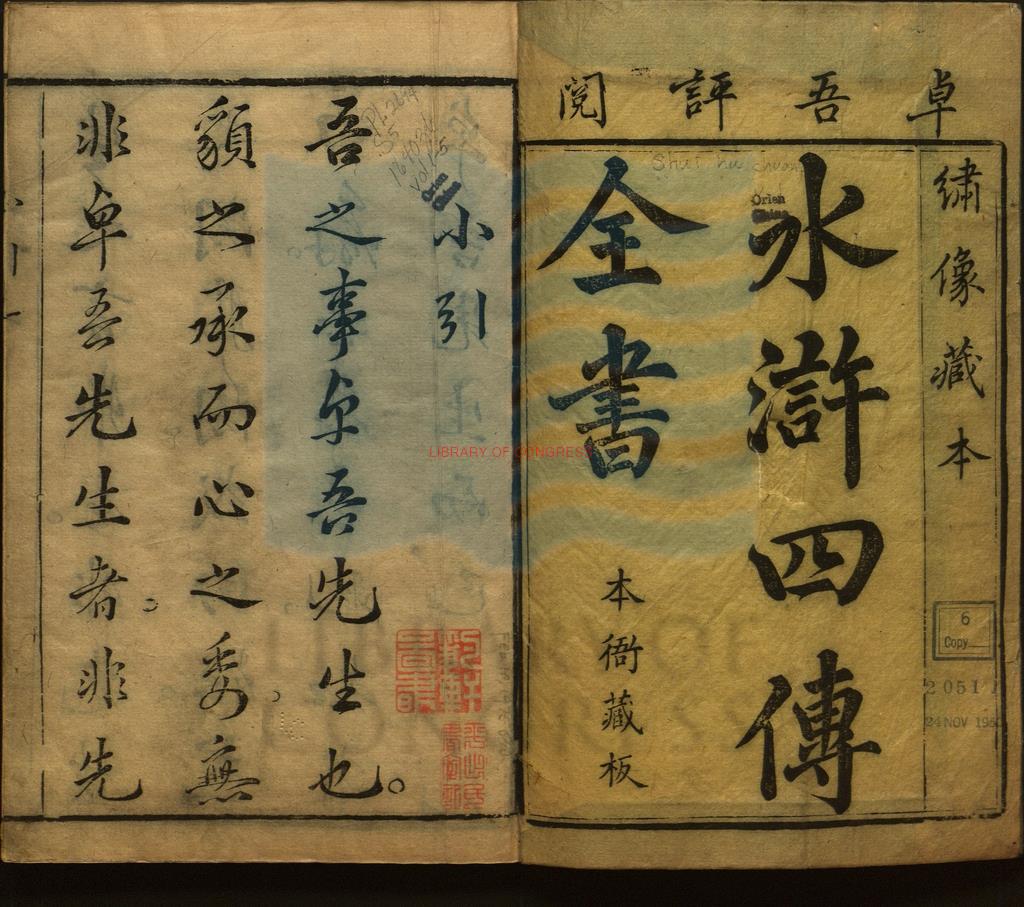 卓吾評閱
繡像藏本
水滸四傳
全書
本衙藏板
Shui hu chuan
Orien
China
6
Copy
2051
24 NOV 19
LIBRARY OF CONGRESS
小引
吾之事卓吾先生也。
貌之承而心之委，無
非卓吾先生者。非先
PL2694
.S5
vol 1-5